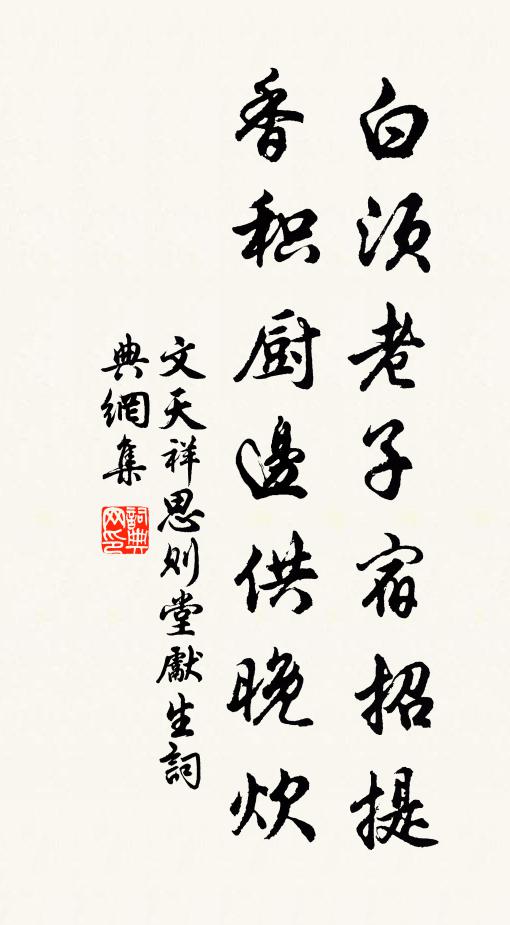 白須老子宿招提
香积厨邊供晚炊
文天祥思则堂獻生詞
典網集
詞典网印